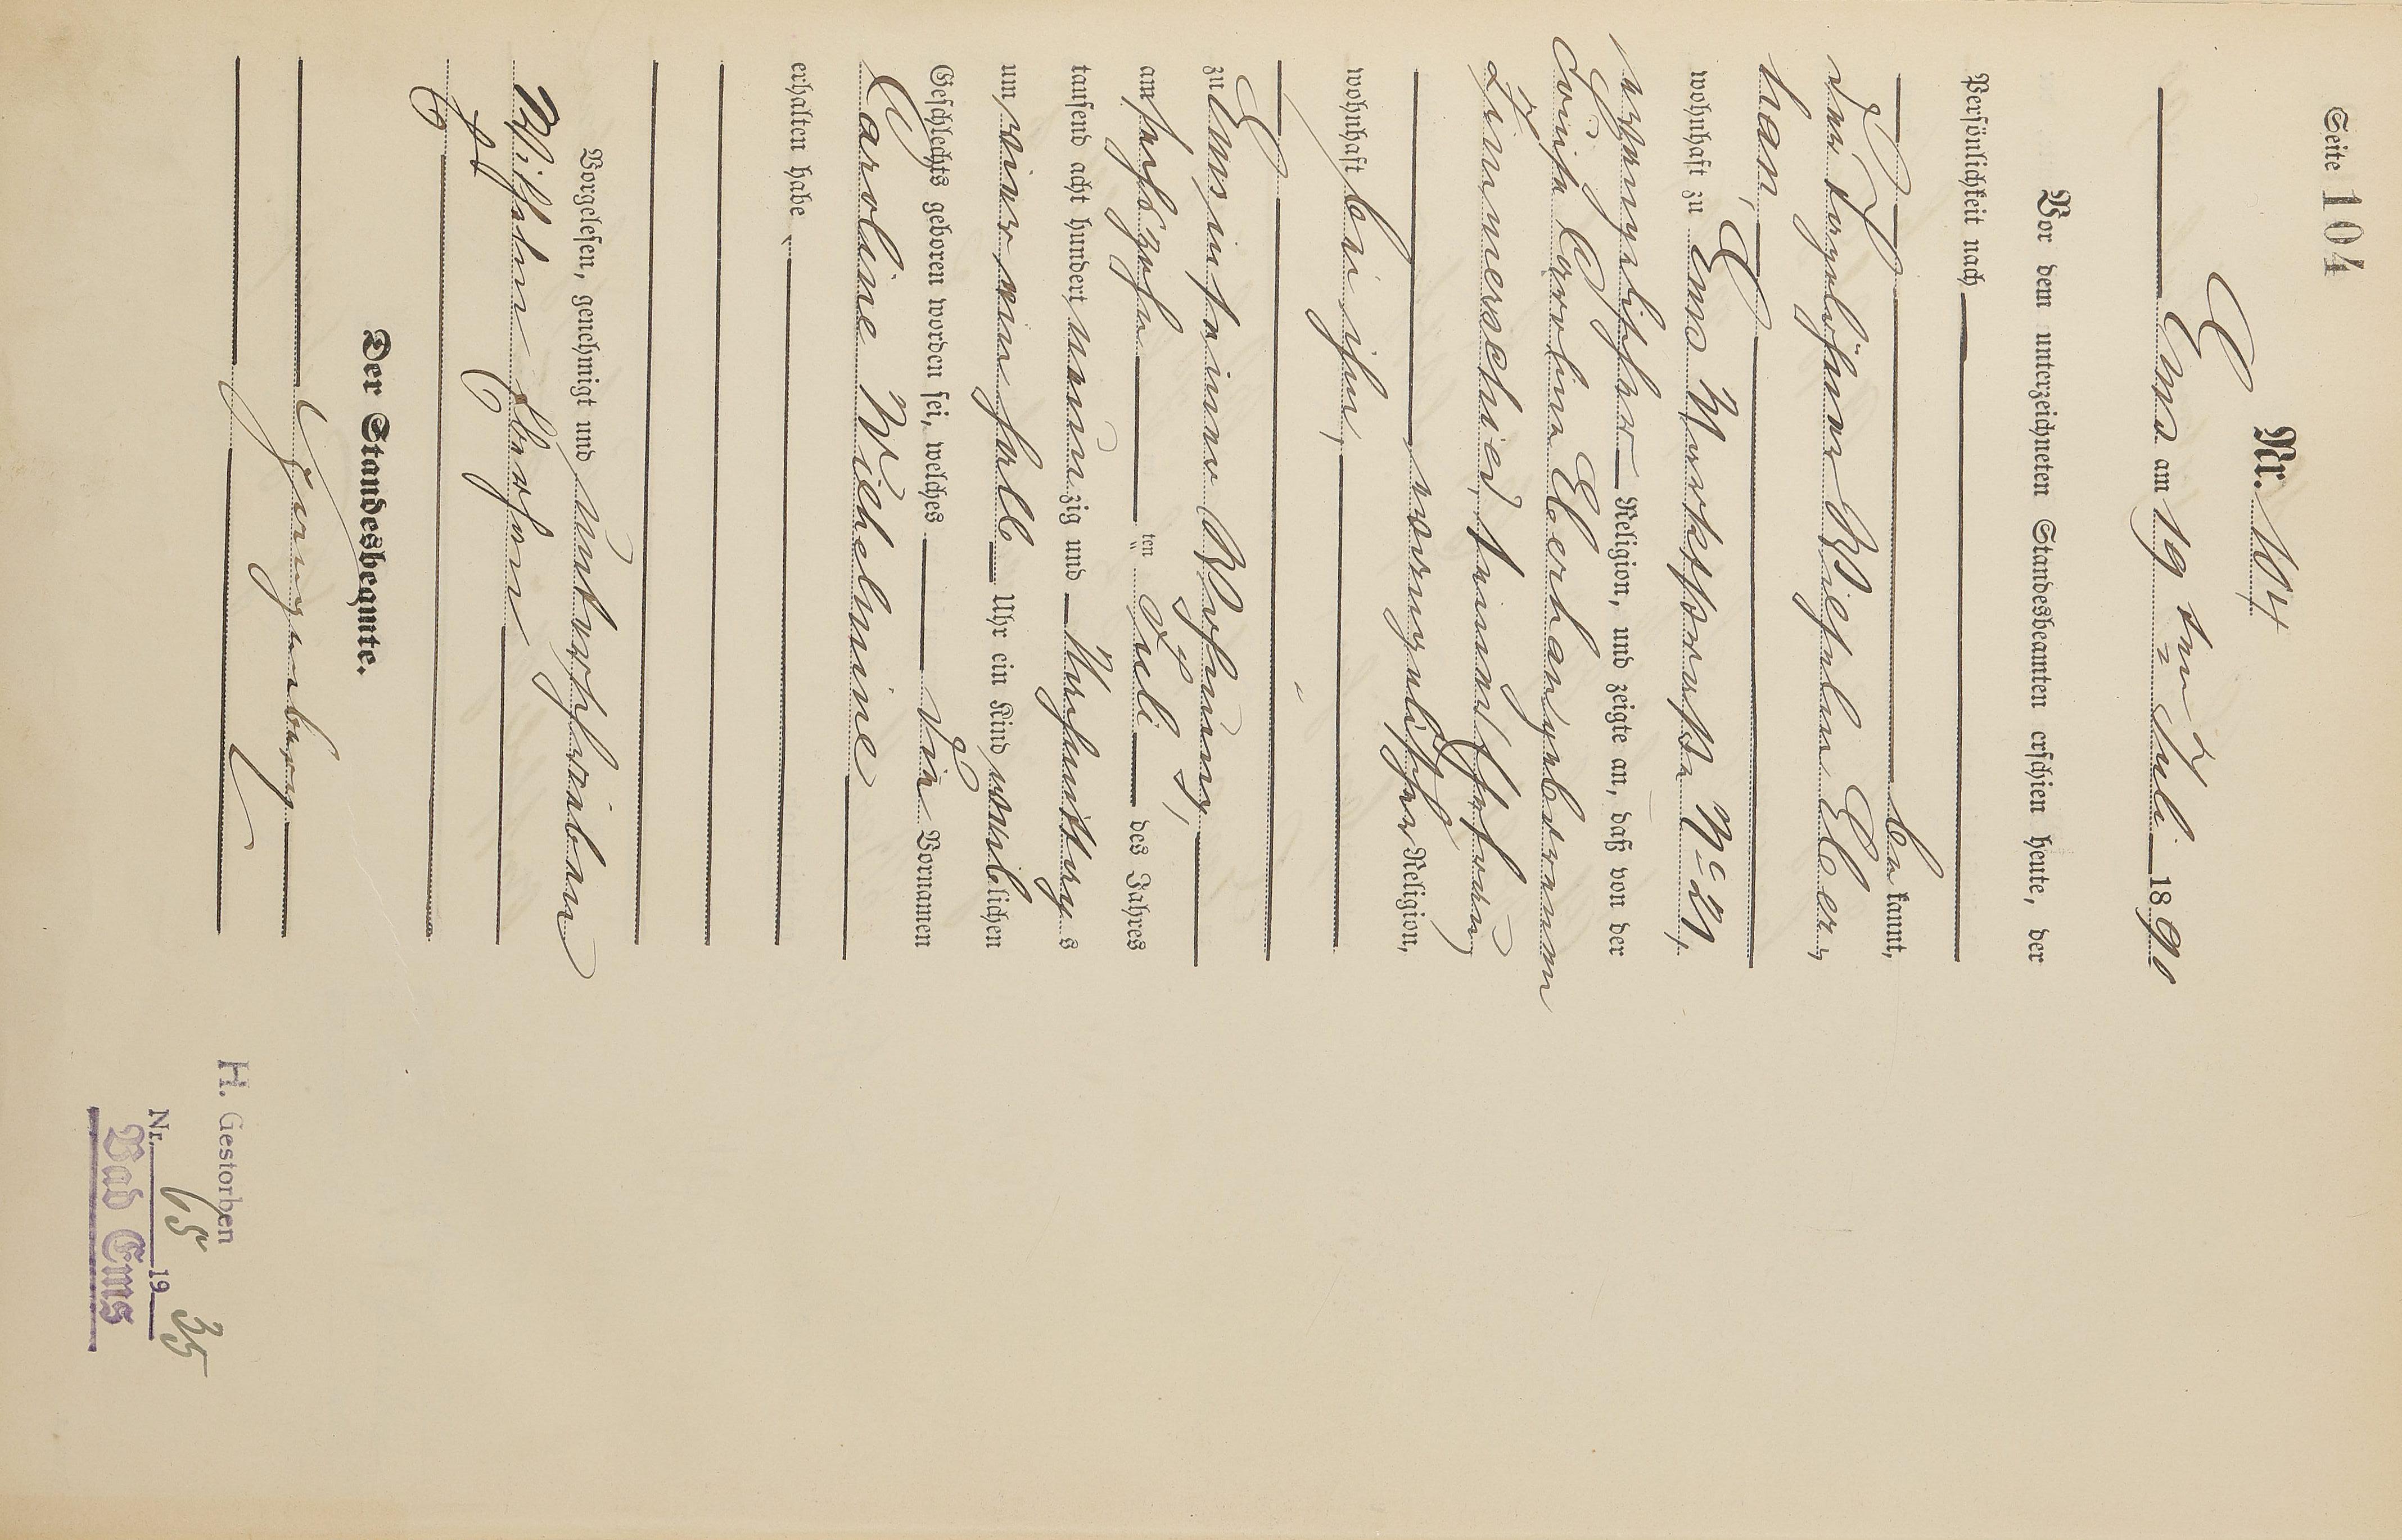 Seite 104
Nr. 104
Ems am 19 ten Juli 1890
Vor dem unterzeichneten Standesbeamten erschien heute, der
Persönlichkeit nach
be kannt,
der Tagelöhner Wilhelm Eber-
han,
wohnhaft zu Ems Marktstraße No 21,
evangelischer Religion, und zeigte an, daß von der
Louise Caroline Eberhan geborenen
Zimmerschied, seiner Ehefrau,
evangelischer Religion,
wohnhaft bei ihm,
zu Ems in seiner Wohnung,
am sechszehn ten Juli des Jahres
tausend acht hundert neun zig und Nachmittag s
um vier ein halb Uhr ein Kind weiblichen
Geschlechts geboren worden sei, welches die Vornamen
Caroline Wilhelmine
erhalten habe
Vorgelesen, genehmigt und unterschrieben
Wilhelm
Der Standesbeamte.
H. Gestorben
Nr. 65 19 35
Bad Ems